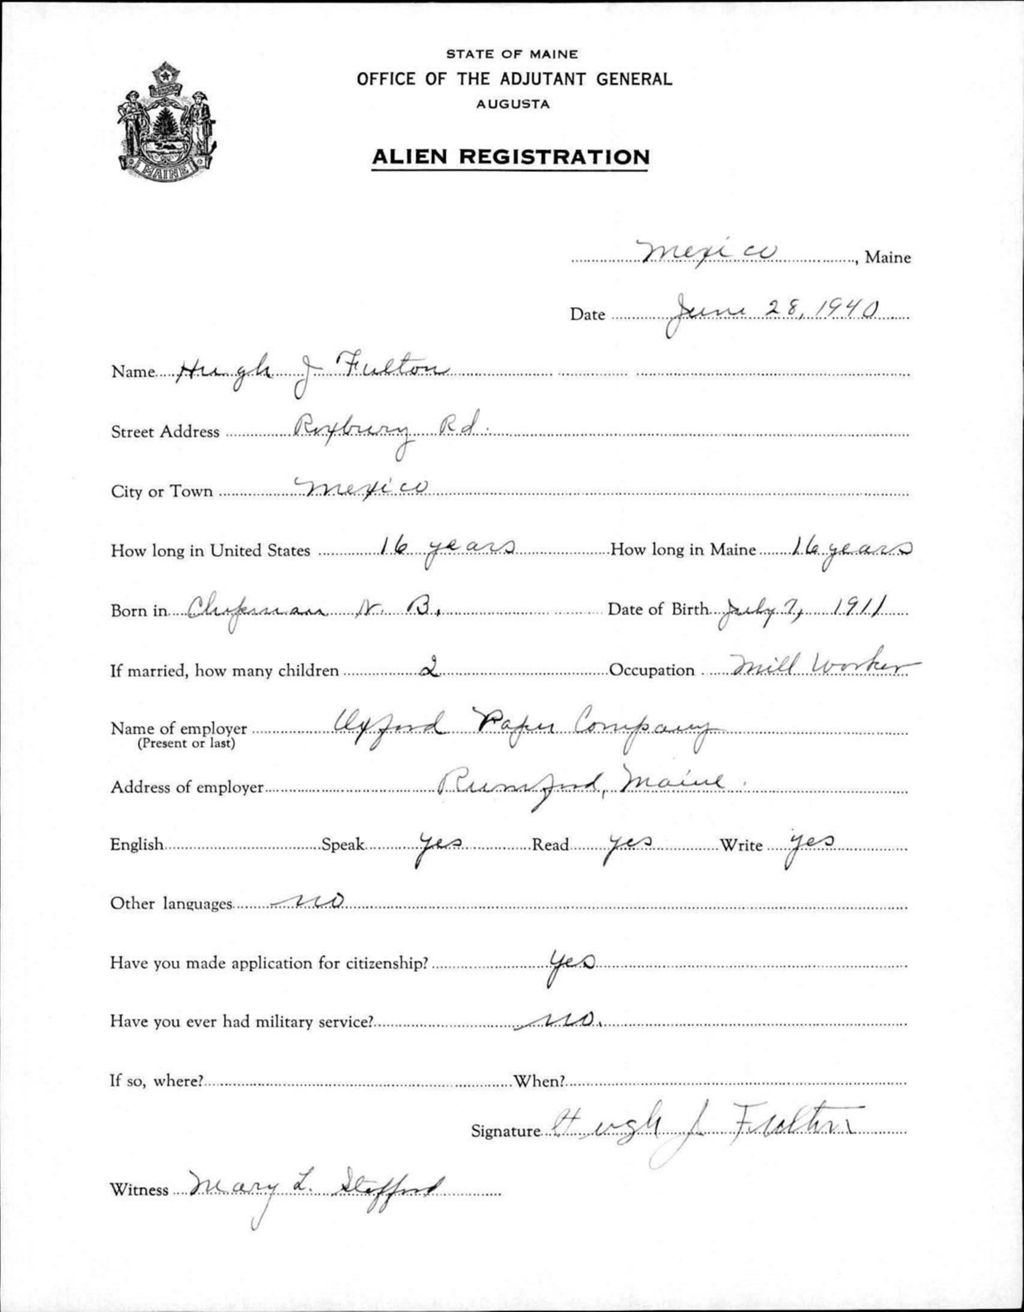 STATE OF MAINE
OFFICE OF THE ADJUTANT GENERAL
AUGUSTA
ALIEN REGISTRATION
MAINE
Mexico, Maine
Date June 28, 1940
Name Hugh J Fulton
Street Address Roxbury Rd.
City or Town Mexico
How long in United States 16 years How long in Maine 16 years
Born in Chipman N. B. Date of Birth July 7, 1911
If married, how many children 2 Occupation Mill Worker
Name of employer Oxford Paper Company
(Present or last)
Address of employer Rumford, Maine.
English Speak yes Read yes Write yes
Other languages no
Have you made application for citizenship? yes
Have you ever had military service? no.
If so, where? When?
Signature Hugh J Fulton
Witness Mary L. Stafford